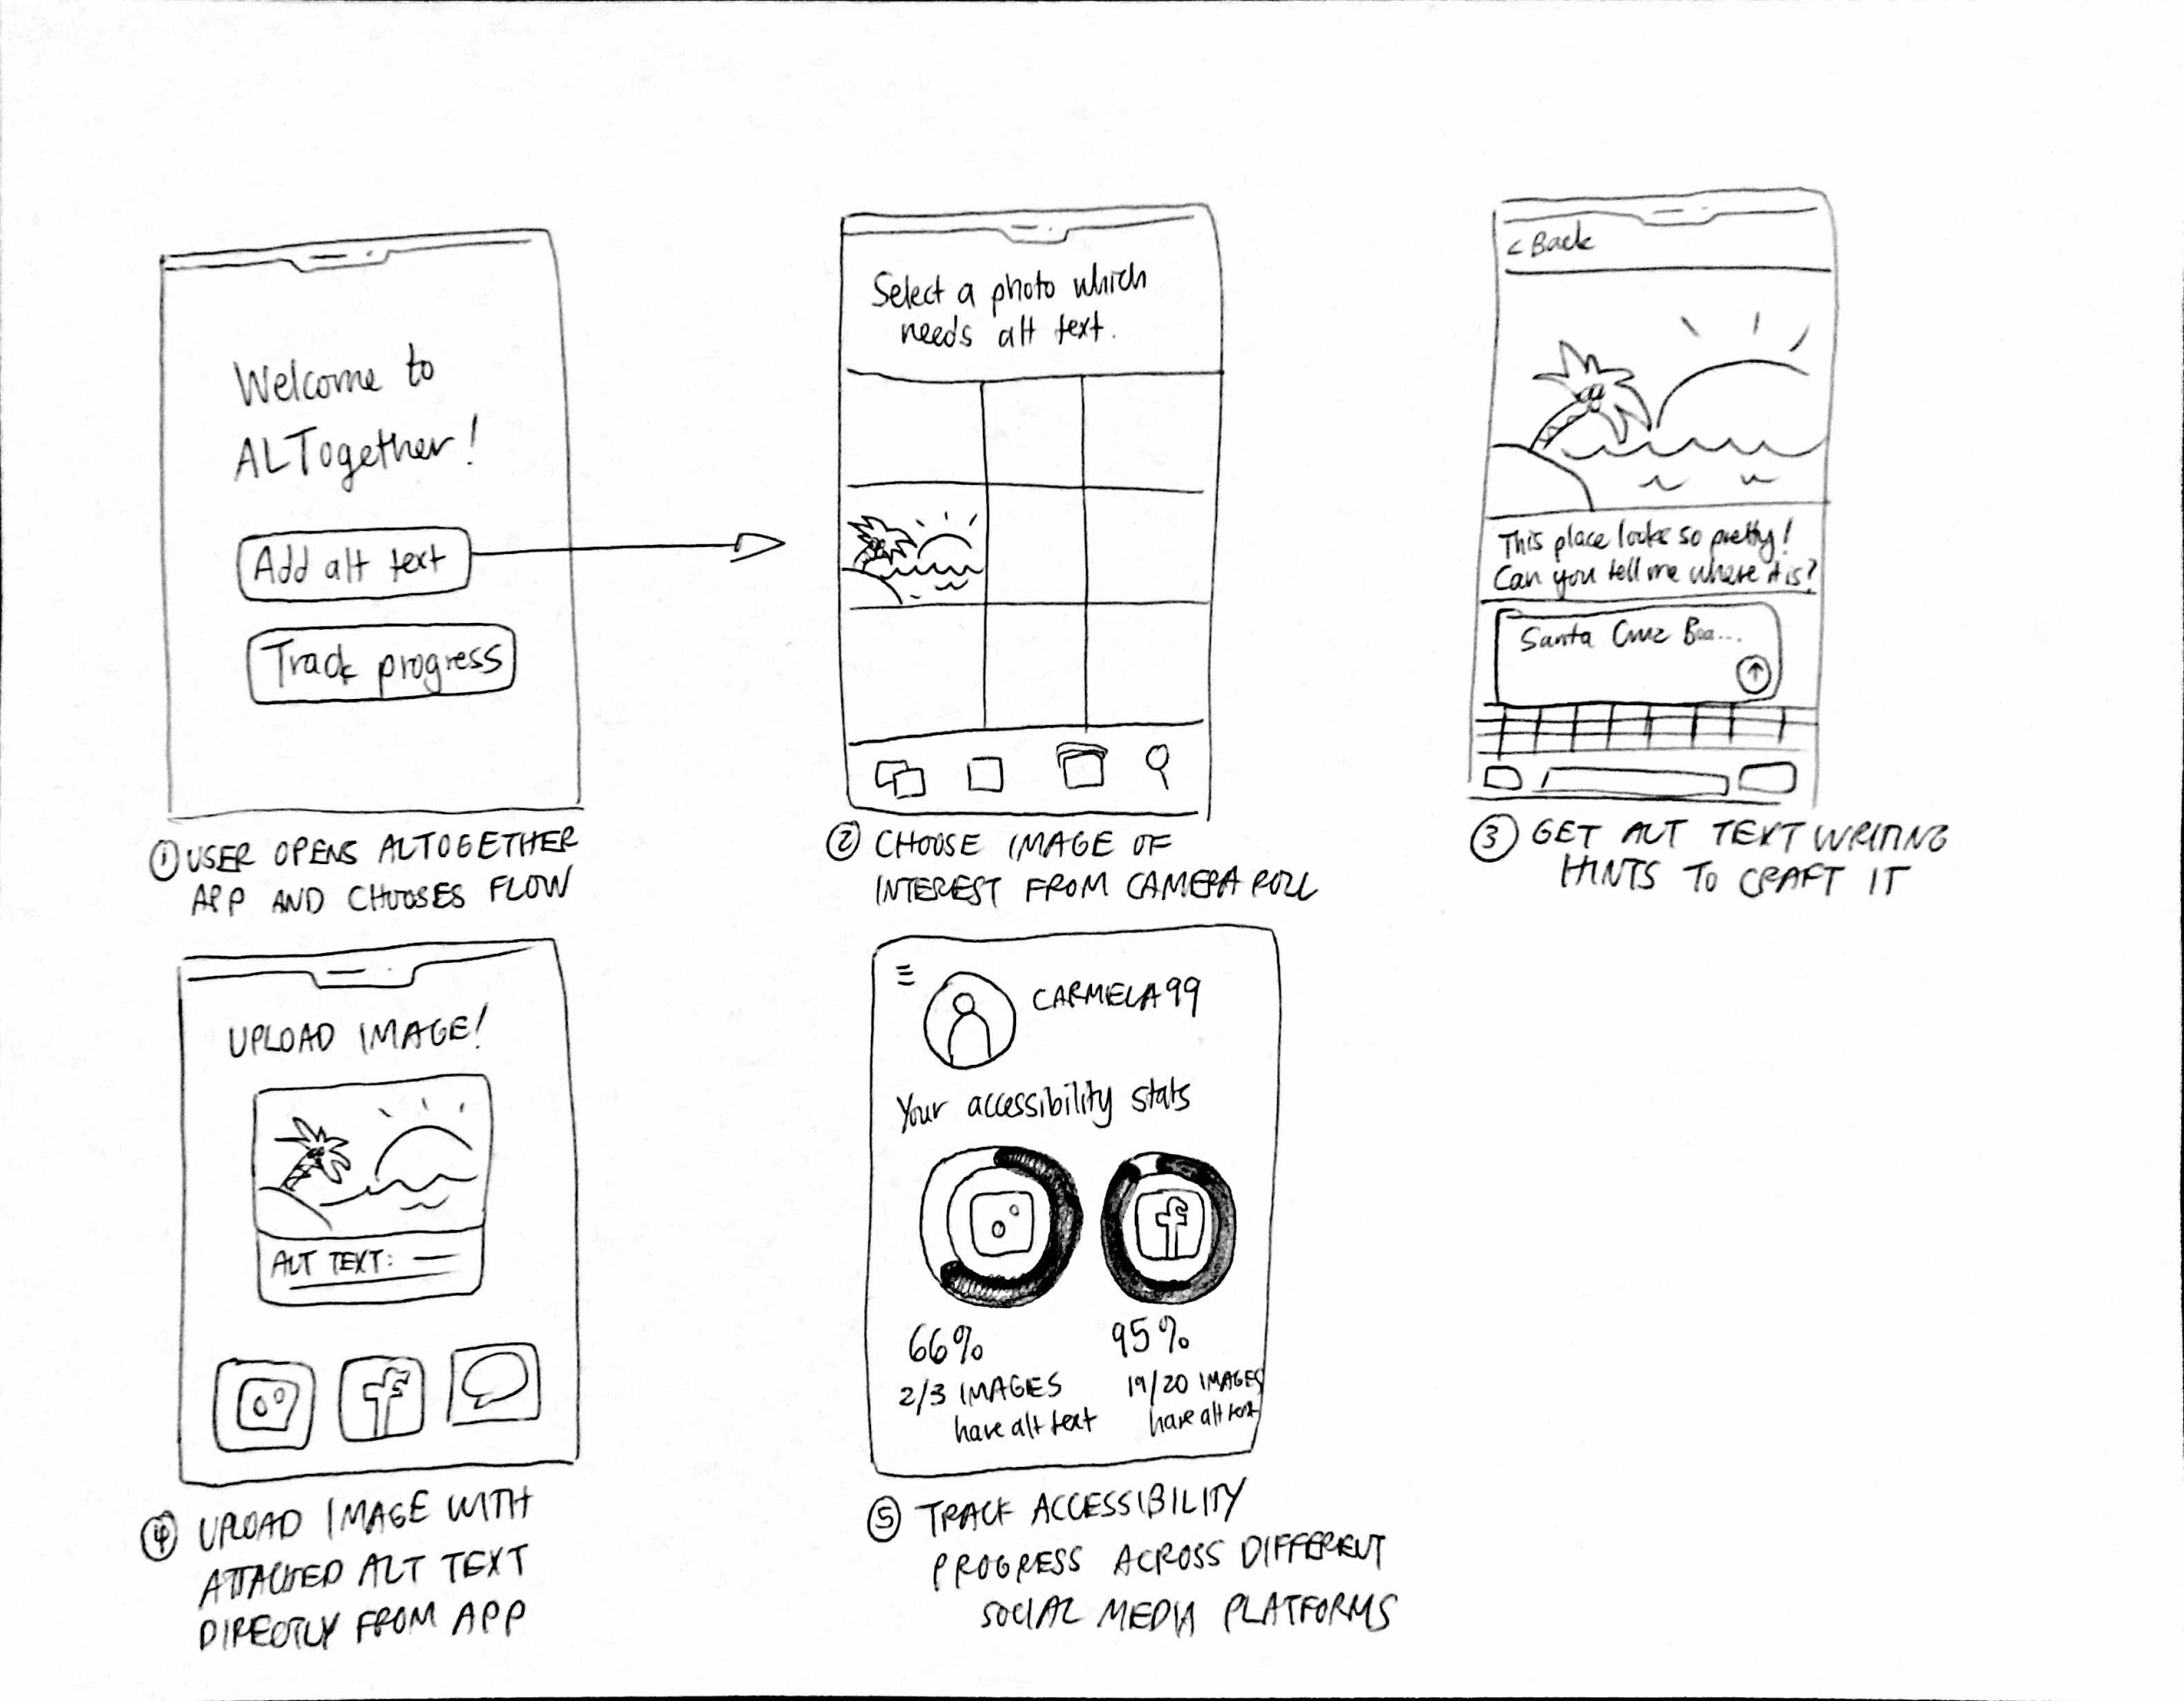 Welcome to
ALTogether!
Add alt text
Track progress
① USER OPENS ALTOGETHER
APP AND CHOOSES FLOW
Select a photo which
needs alt text.
② CHOOSE IMAGE OF
INTEREST FROM CAMERA ROLL
< Back
This place looks so pretty!
Can you tell me where it is?
Santa Cruz Boa...
③ GET ALT TEXT WRITING
HINTS TO CRAFT IT
UPLOAD IMAGE!
ALT TEXT:
④ UPLOAD IMAGE WITH
ATTACHED ALT TEXT
DIRECTLY FROM APP
CARMELA99
Your accessibility stats
66%
2/3 IMAGES
have alt text
95%
19/20 IMAGES
have alt text
⑤ TRACK ACCESSIBILITY
PROGRESS ACROSS DIFFERENT
SOCIAL MEDIA PLATFORMS